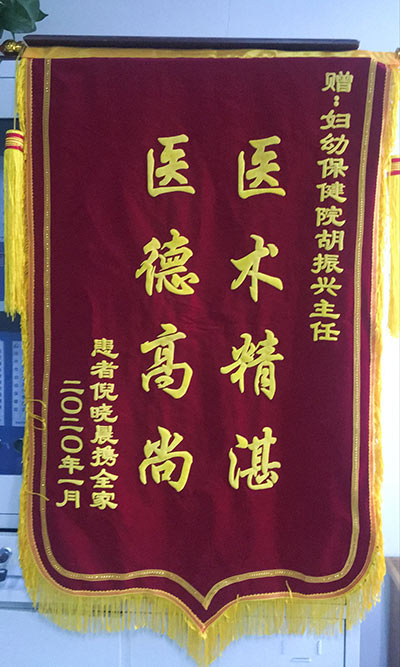 赠：妇幼保健院胡振兴主任
医术精湛
医德高尚
患者倪晓晨携全家
二〇二〇年一月